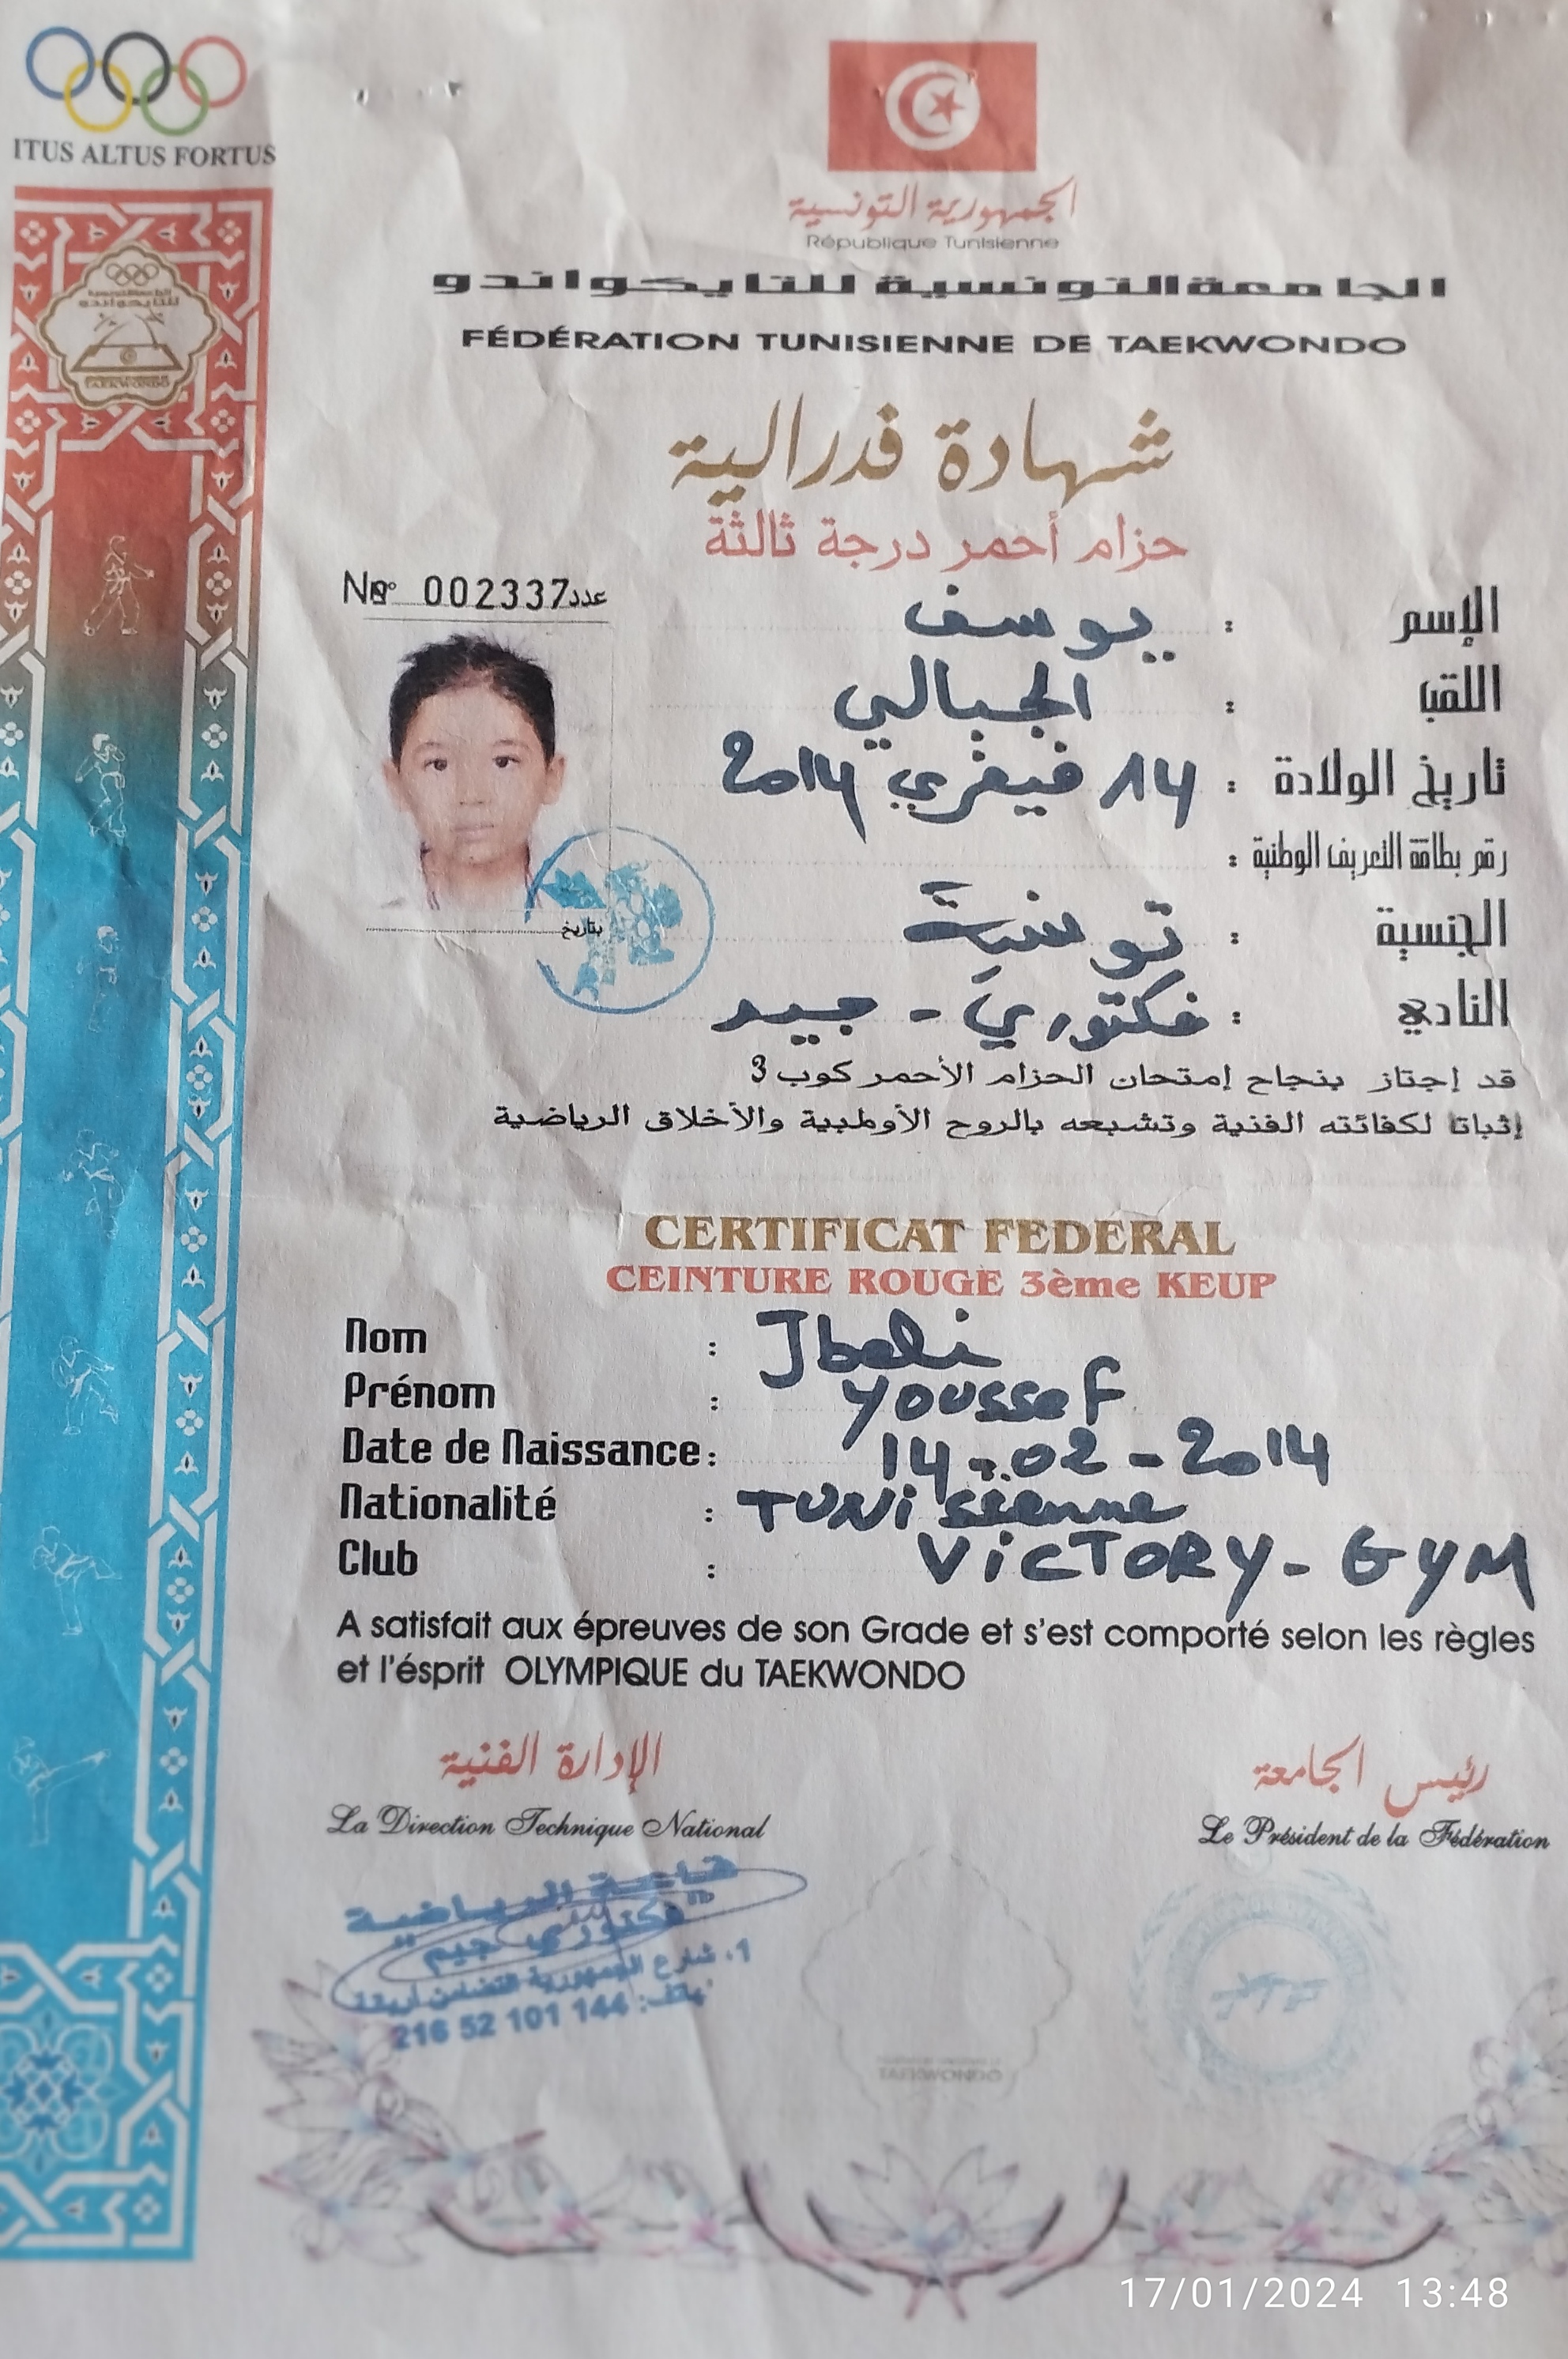 ITUS ALTUS FORTUS
الجمهورية التونسية
République Tunisienne
الجامعة التونسية للتايكواندو
FÉDÉRATION TUNISIENNE DE TAEKWONDO
شهادة فدرالية
حزام أحمر درجة ثالثة
N° 002337 عدد
الإسم : يوسف
اللقب : الجبالي
تاريخ الولادة : 14 فيفري 2014
رقم بطاقة التعريف الوطنية :
الجنسية : تونسية
بتاريخ
النادي : فكتوري - جيم
قد إجتاز بنجاح إمتحان الحزام الأحمر كوب 3
إثباتا لكفائته الفنية وتشبعه بالروح الأولمبية والأخلاق الرياضية
CERTIFICAT FEDERAL
CEINTURE ROUGE 3ème KEUP
Nom : Jbeli
Prénom : Youssef
Date de Naissance : 14-02-2014
Nationalité : TUNisienne
Club : ViCTORY-GYM
A satisfait aux épreuves de son Grade et s'est comporté selon les règles
et l'ésprit OLYMPIQUE du TAEKWONDO
الإدارة الفنية
La Direction Technique National
رئيس الجامعة
Le Président de la Fédération
قاعة الرياضية
فكتوري جيم
1، شارع الجمهورية التضامن أريانة
هاتف: 216 52 101 144
TAEKWONDO
17/01/2024 13:48